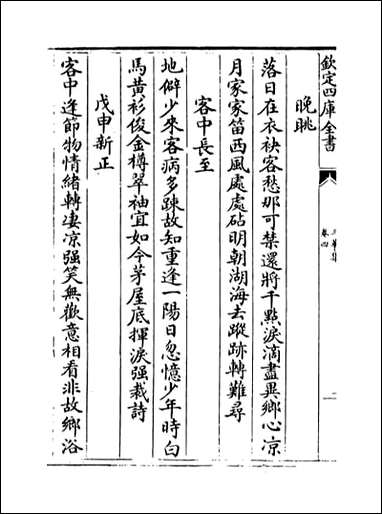 欽定四庫全書
卷四
晚眺
落日在衣袂客愁那可禁還將千點淚滴盡異鄉心凉
月家家笛西風處處砧明朝湖海去蹤跡轉難尋
客中長至
地僻少來客病多疎故知重逢一陽日忽憶少年時白
馬黄衫俊金樽翠袖宜如今茅屋底揮淚强裁詩
戊申新正
客中逢節物情緒轉凄凉强笑無歡意相看非故鄉浴